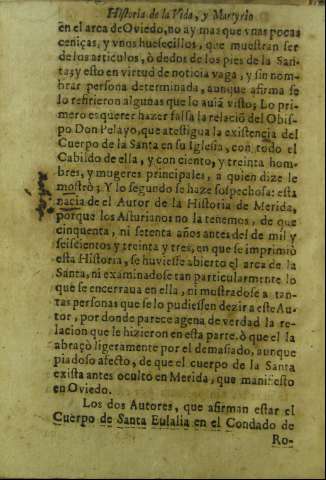 Historia de la Vida, y Martyrio
en el arca de Oviedo, no ay mas que vnas pocas
ceniças, y vnos huesecillos, que muestran ser
de los articulos, ò dedos de los pies de la San-
ta; y esto en virtud de noticia vaga, y sin nom-
brar persona determinada, aunque afirma se
lo refirieron algunas que lo auiã visto; Lo pri-
mero es querer hazer falsa la relaciõ del Obis-
po Don Pelayo, que atestigua la existencia del
Cuerpo de la Santa en su Iglesia, con todo el
Cabildo de ella, y con ciento, y treinta hom-
bres, y mugeres principales, a quien dize le
mostrò; Y lo segundo se haze sospechosa: esta
nacia de el Autor de la Historia de Merida,
porque los Asturianos no la tenemos, de que
cinquenta, ni setenta años antes del de mil y
seiscientos y treinta y tres, en que se imprimiò
esta Historia, se huviesse abierto el arca de la
Santa, ni examinadose tan particularmente lo
que se encerraua en ella, ni mostradose a tan-
tas personas que se lo pudiessen dezir a este Au-
tor, por donde parece agena de verdad la re-
lacion que le hizieron en esta parte, ò que el la
abraçò ligeramente por el demasiado, aunque
piadoso afecto, de que el cuerpo de la Santa
exista antes oculto en Merida, que manifiesto
en Oviedo.
Los dos Autores, que afirman estar el
Cuerpo de Santa Eulalia en el Condado de
Ro-